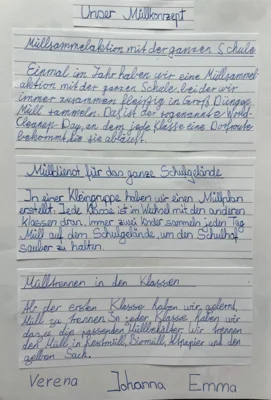 Unser Müllkonzept
Müllsammelaktion mit der ganzen Schule
Einmal im Jahr haben wir eine Müllsammel
aktion mit der ganzen Schule, bei der wir
immer zusammen fleißig in Groß Düngen
Müll sammeln. Das ist der sogenannte World-
Cleanup-Day, an dem jede Klasse eine Dorfroute
bekommt, die sie abläuft.
Mülldienst für das ganze Schulgelände
In einer Kleingruppe haben wir einen Müllplan
erstellt. Jede Klasse ist im Wechsel mit den anderen
Klassen dran. Immer zwei Kinder sammeln jeden Tag
Müll auf dem Schulgelände, um den Schulhof
sauber zu halten.
Mülltrennen in den Klassen
Ab der ersten Klasse haben wir gelernt,
Müll zu trennen. In jeder Klasse haben wir
dazu die passenden Müllbehälter. Wir trennen
den Müll in Restmüll, Biomüll, Altpapier und den
gelben Sack.
Verena Johanna Emma